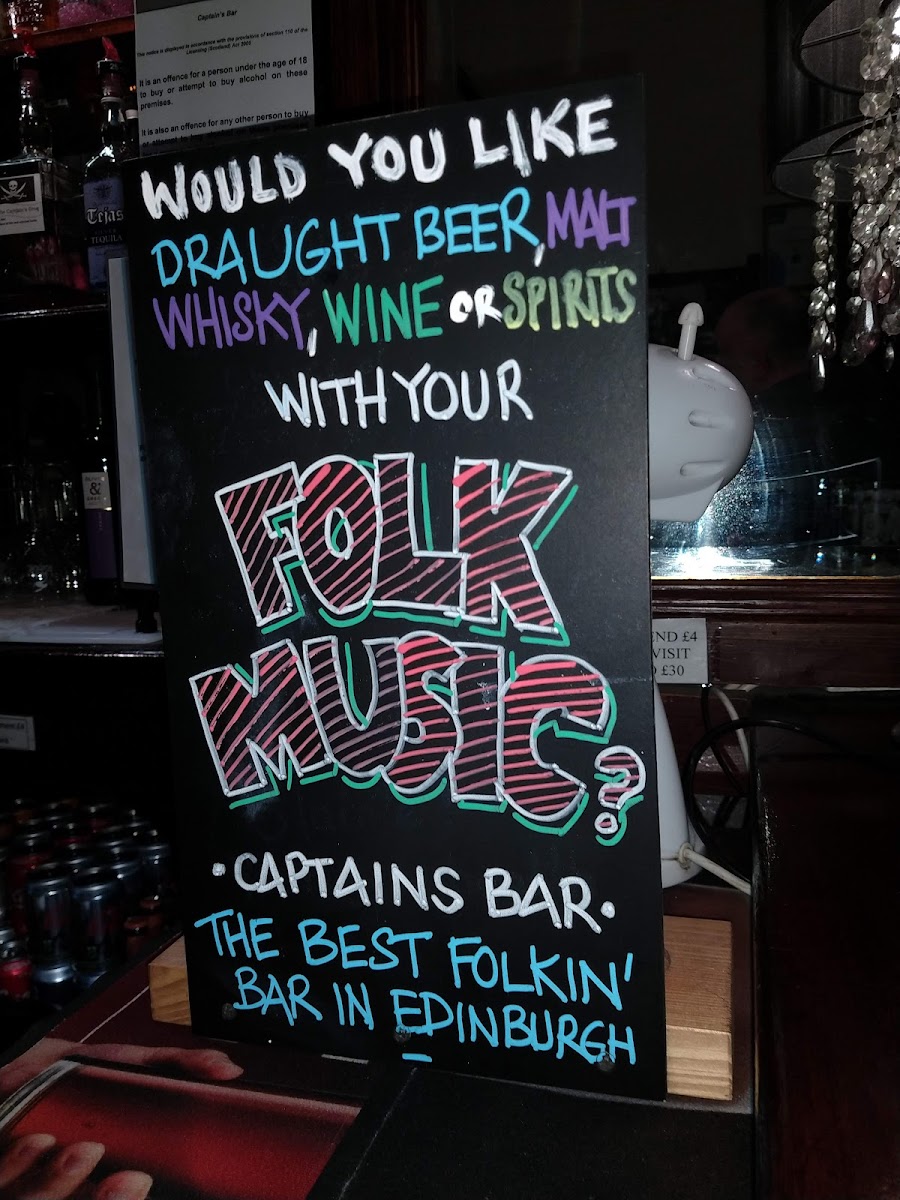 Captain's Bar
This notice is displayed in accordance with the provisions of section 110 of the
Licensing (Scotland) Act 2005
It is an offence for a person under the age of 18
to buy or attempt to buy alcohol on these
premises.
It is also an offence for any other person to buy
WOULD YOU LIKE
DRAUGHT BEER, MALT
WHISKY, WINE OR SPIRITS
WITH YOUR
FOLK
MUSIC?
• CAPTAINS BAR •
THE BEST FOLKIN'
BAR IN EDINBURGH
Tejas
TEQUILA
&
END £4
VISIT
£30